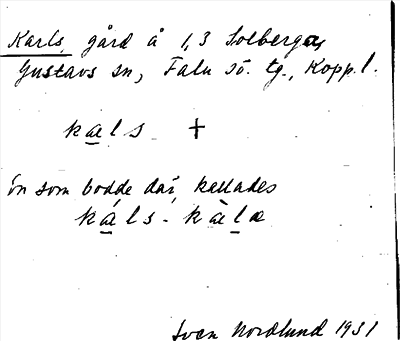 Karls, gård å 1,3 Solberga,
Gustavs sn, Falu sö. tg., Kopp.l.
kals +
en som bodde där, kallades
káls-kàlα
Sven Nordlund 1931